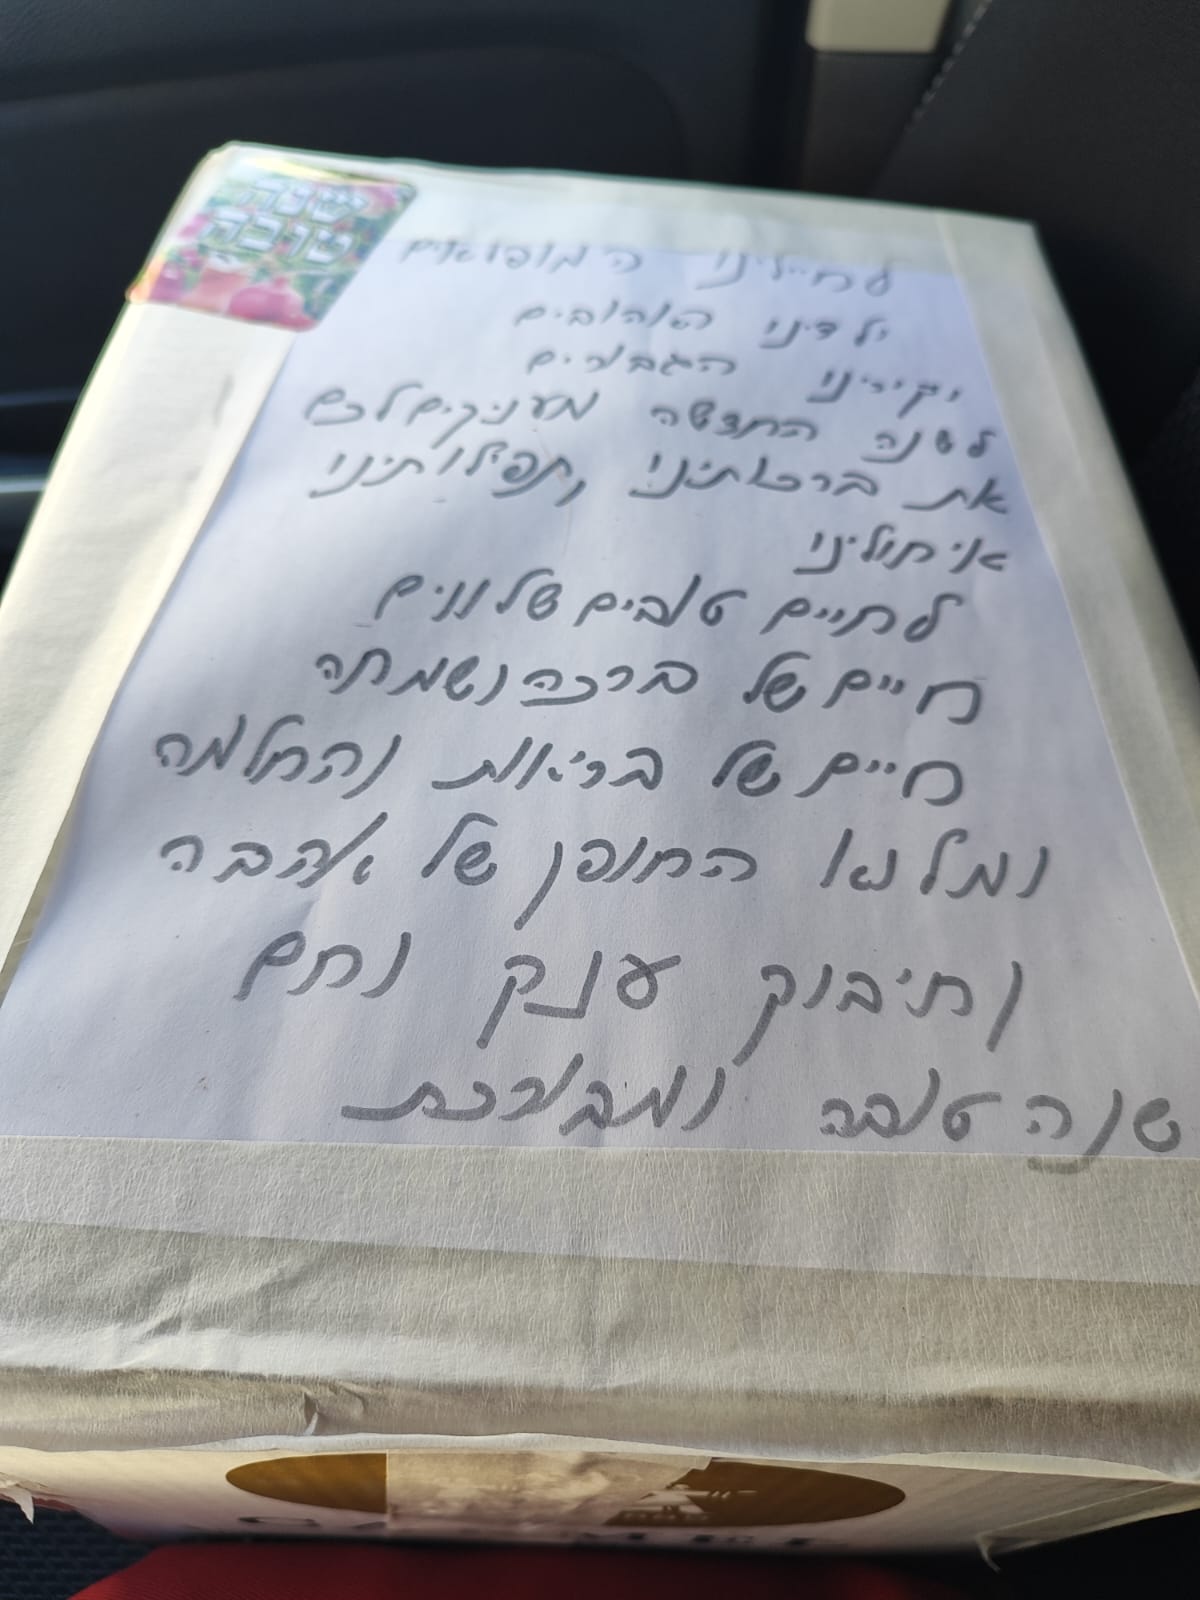 שנה
טובה
לחיילינו המופלאים
ילדינו האהובים
יקירינו הגבורים
לשנה החדשה מעניקים לכם
את ברכותינו, תפילותינו
איחולינו
לחיים טובים שלווים
חיים של ברכה ושמחה
חיים של בריאות והחלמה
ומלוא החופן של אהבה
וחיבוק ענק וחם
שנה טובה ומבורכת